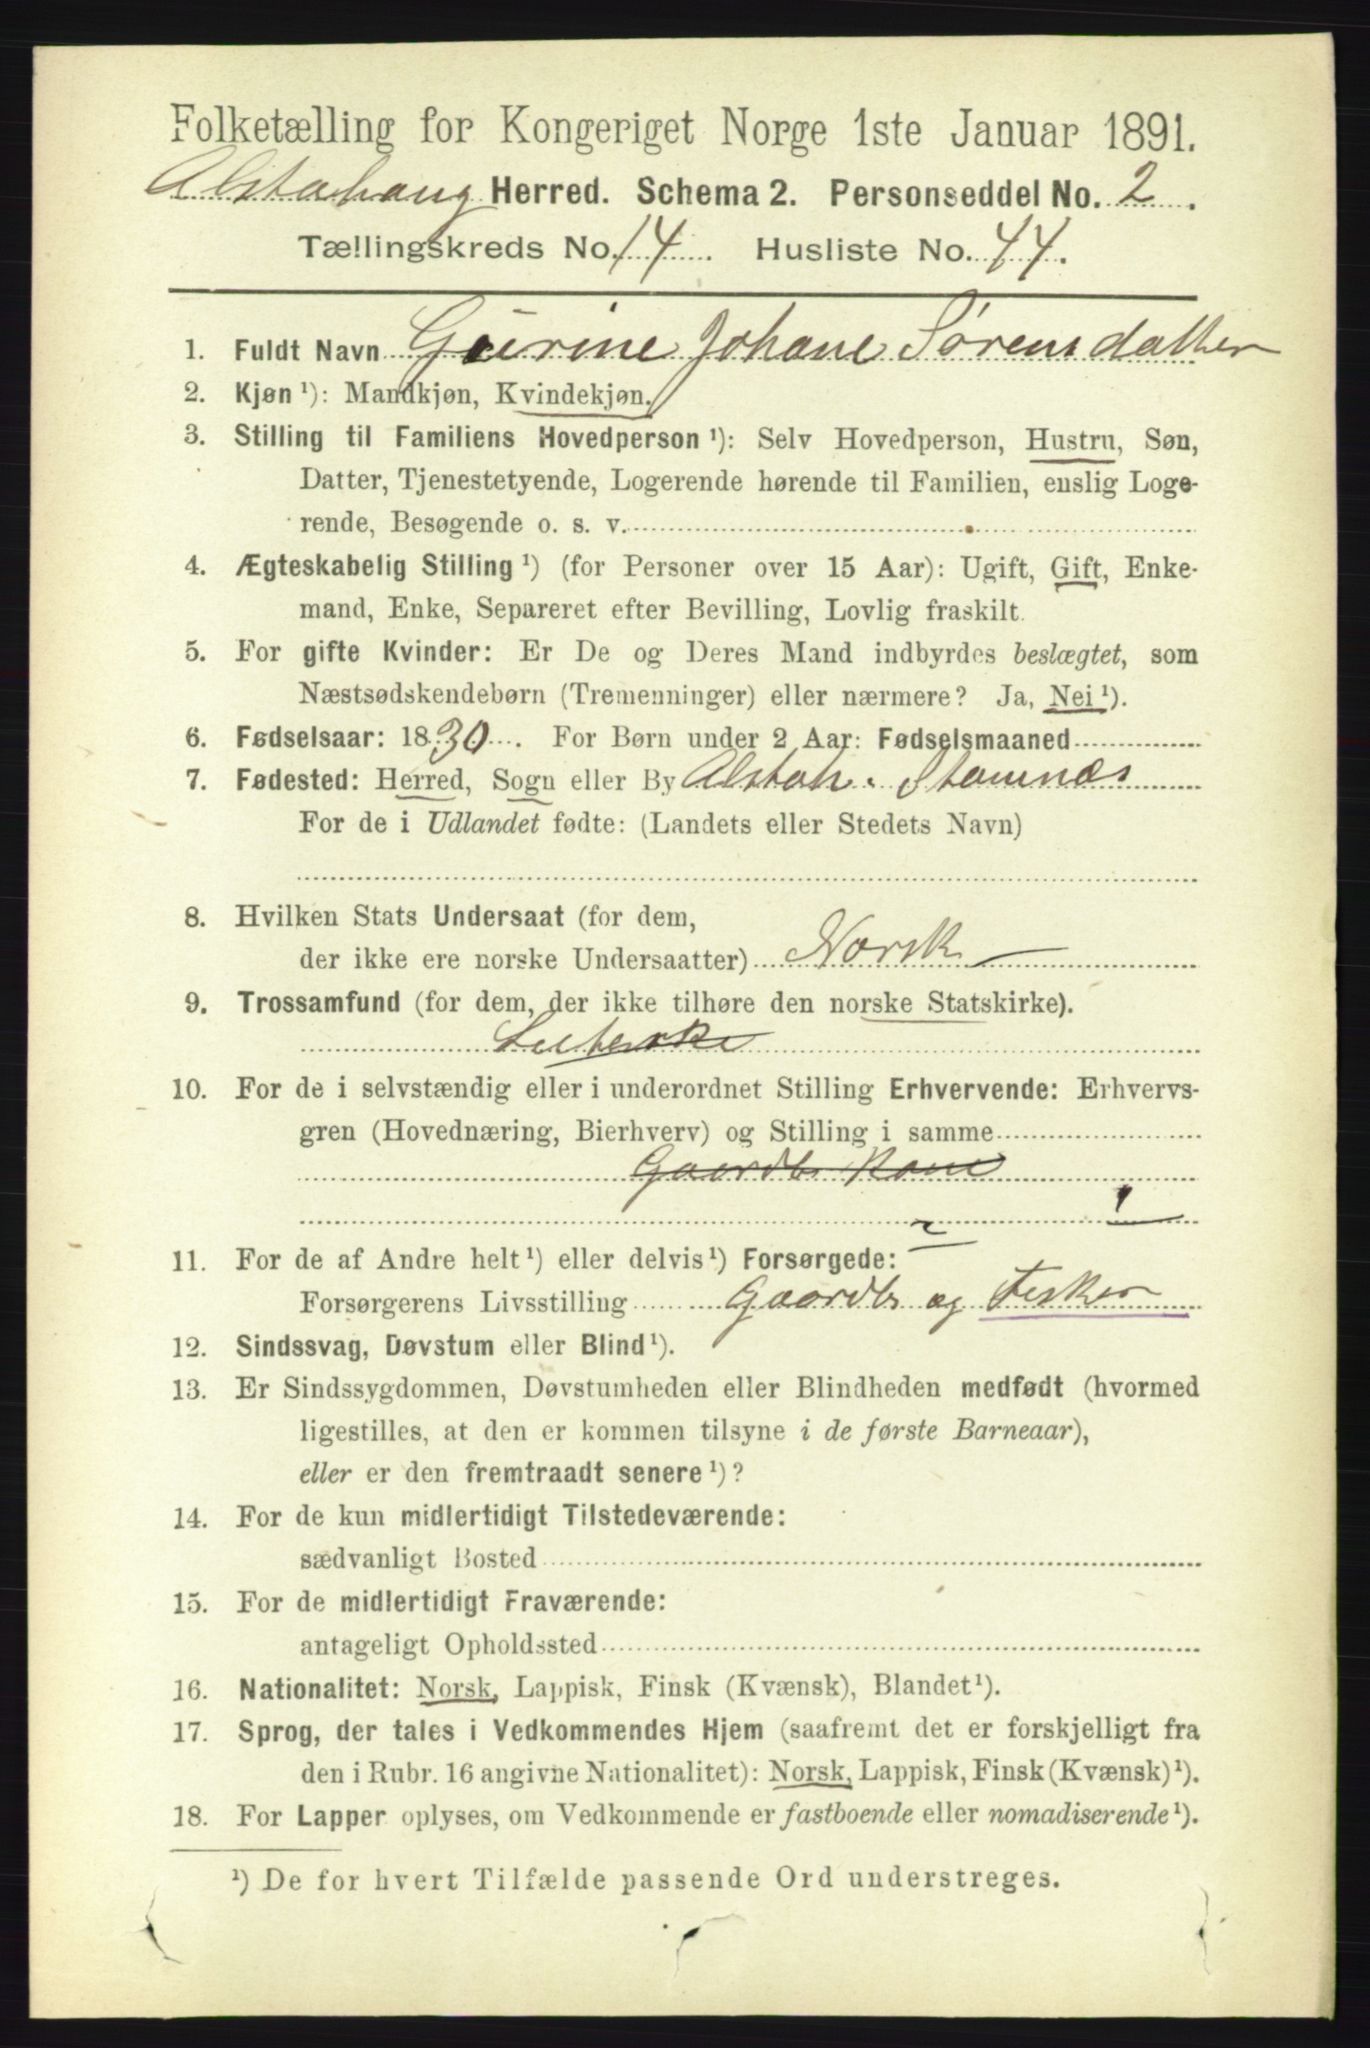 Folketælling for Kongeriget Norge 1ste Januar 1891.
Alstahaug Herred. Schema 2. Personseddel No. 2.
Tællingskreds No. 14. Husliste No. 44.
1. Fuldt Navn Gurine Johane Sørensdatter
2. Kjøn ¹): Mandkjøn, Kvindekjøn.
3. Stilling til Familiens Hovedperson ¹): Selv Hovedperson, Hustru, Søn,
Datter, Tjenestetyende, Logerende hørende til Familien, enslig Loge-
rende, Besøgende o. s. v.
4. Ægteskabelig Stilling ¹) (for Personer over 15 Aar): Ugift, Gift, Enke-
mand, Enke, Separeret efter Bevilling, Lovlig fraskilt.
5. For gifte Kvinder: Er De og Deres Mand indbyrdes beslægtet, som
Næstsødskendebørn (Tremenninger) eller nærmere? Ja, Nei ¹).
6. Fødselsaar: 1830. For Børn under 2 Aar: Fødselsmaaned
7. Fødested: Herred, Sogn eller By Alstah. Stamnæs
For de i Udlandet fødte: (Landets eller Stedets Navn)
8. Hvilken Stats Undersaat (for dem,
der ikke ere norske Undersaatter) Norsk
9. Trossamfund (for dem, der ikke tilhøre den norske Statskirke).
Luterske
10. For de i selvstændig eller i underordnet Stilling Erhvervende: Erhvervs-
gren (Hovednæring, Bierhverv) og Stilling i samme
Gaardb Kone
1
2
11. For de af Andre helt ¹) eller delvis ¹) Forsørgede:
Forsørgerens Livsstilling Gaardb og Fisker
12. Sindssvag, Døvstum eller Blind ¹).
13. Er Sindssygdommen, Døvstumheden eller Blindheden medfødt (hvormed
ligestilles, at den er kommen tilsyne i de første Barneaar),
eller er den fremtraadt senere ¹)?
14. For de kun midlertidigt Tilstedeværende:
sædvanligt Bosted
15. For de midlertidigt Fraværende:
antageligt Opholdssted
16. Nationalitet: Norsk, Lappisk, Finsk (Kvænsk), Blandet ¹).
17. Sprog, der tales i Vedkommendes Hjem (saafremt det er forskjelligt fra
den i Rubr. 16 angivne Nationalitet): Norsk, Lappisk, Finsk (Kvænsk) ¹).
18. For Lapper oplyses, om Vedkommende er fastboende eller nomadiserende ¹).
¹) De for hvert Tilfælde passende Ord understreges.